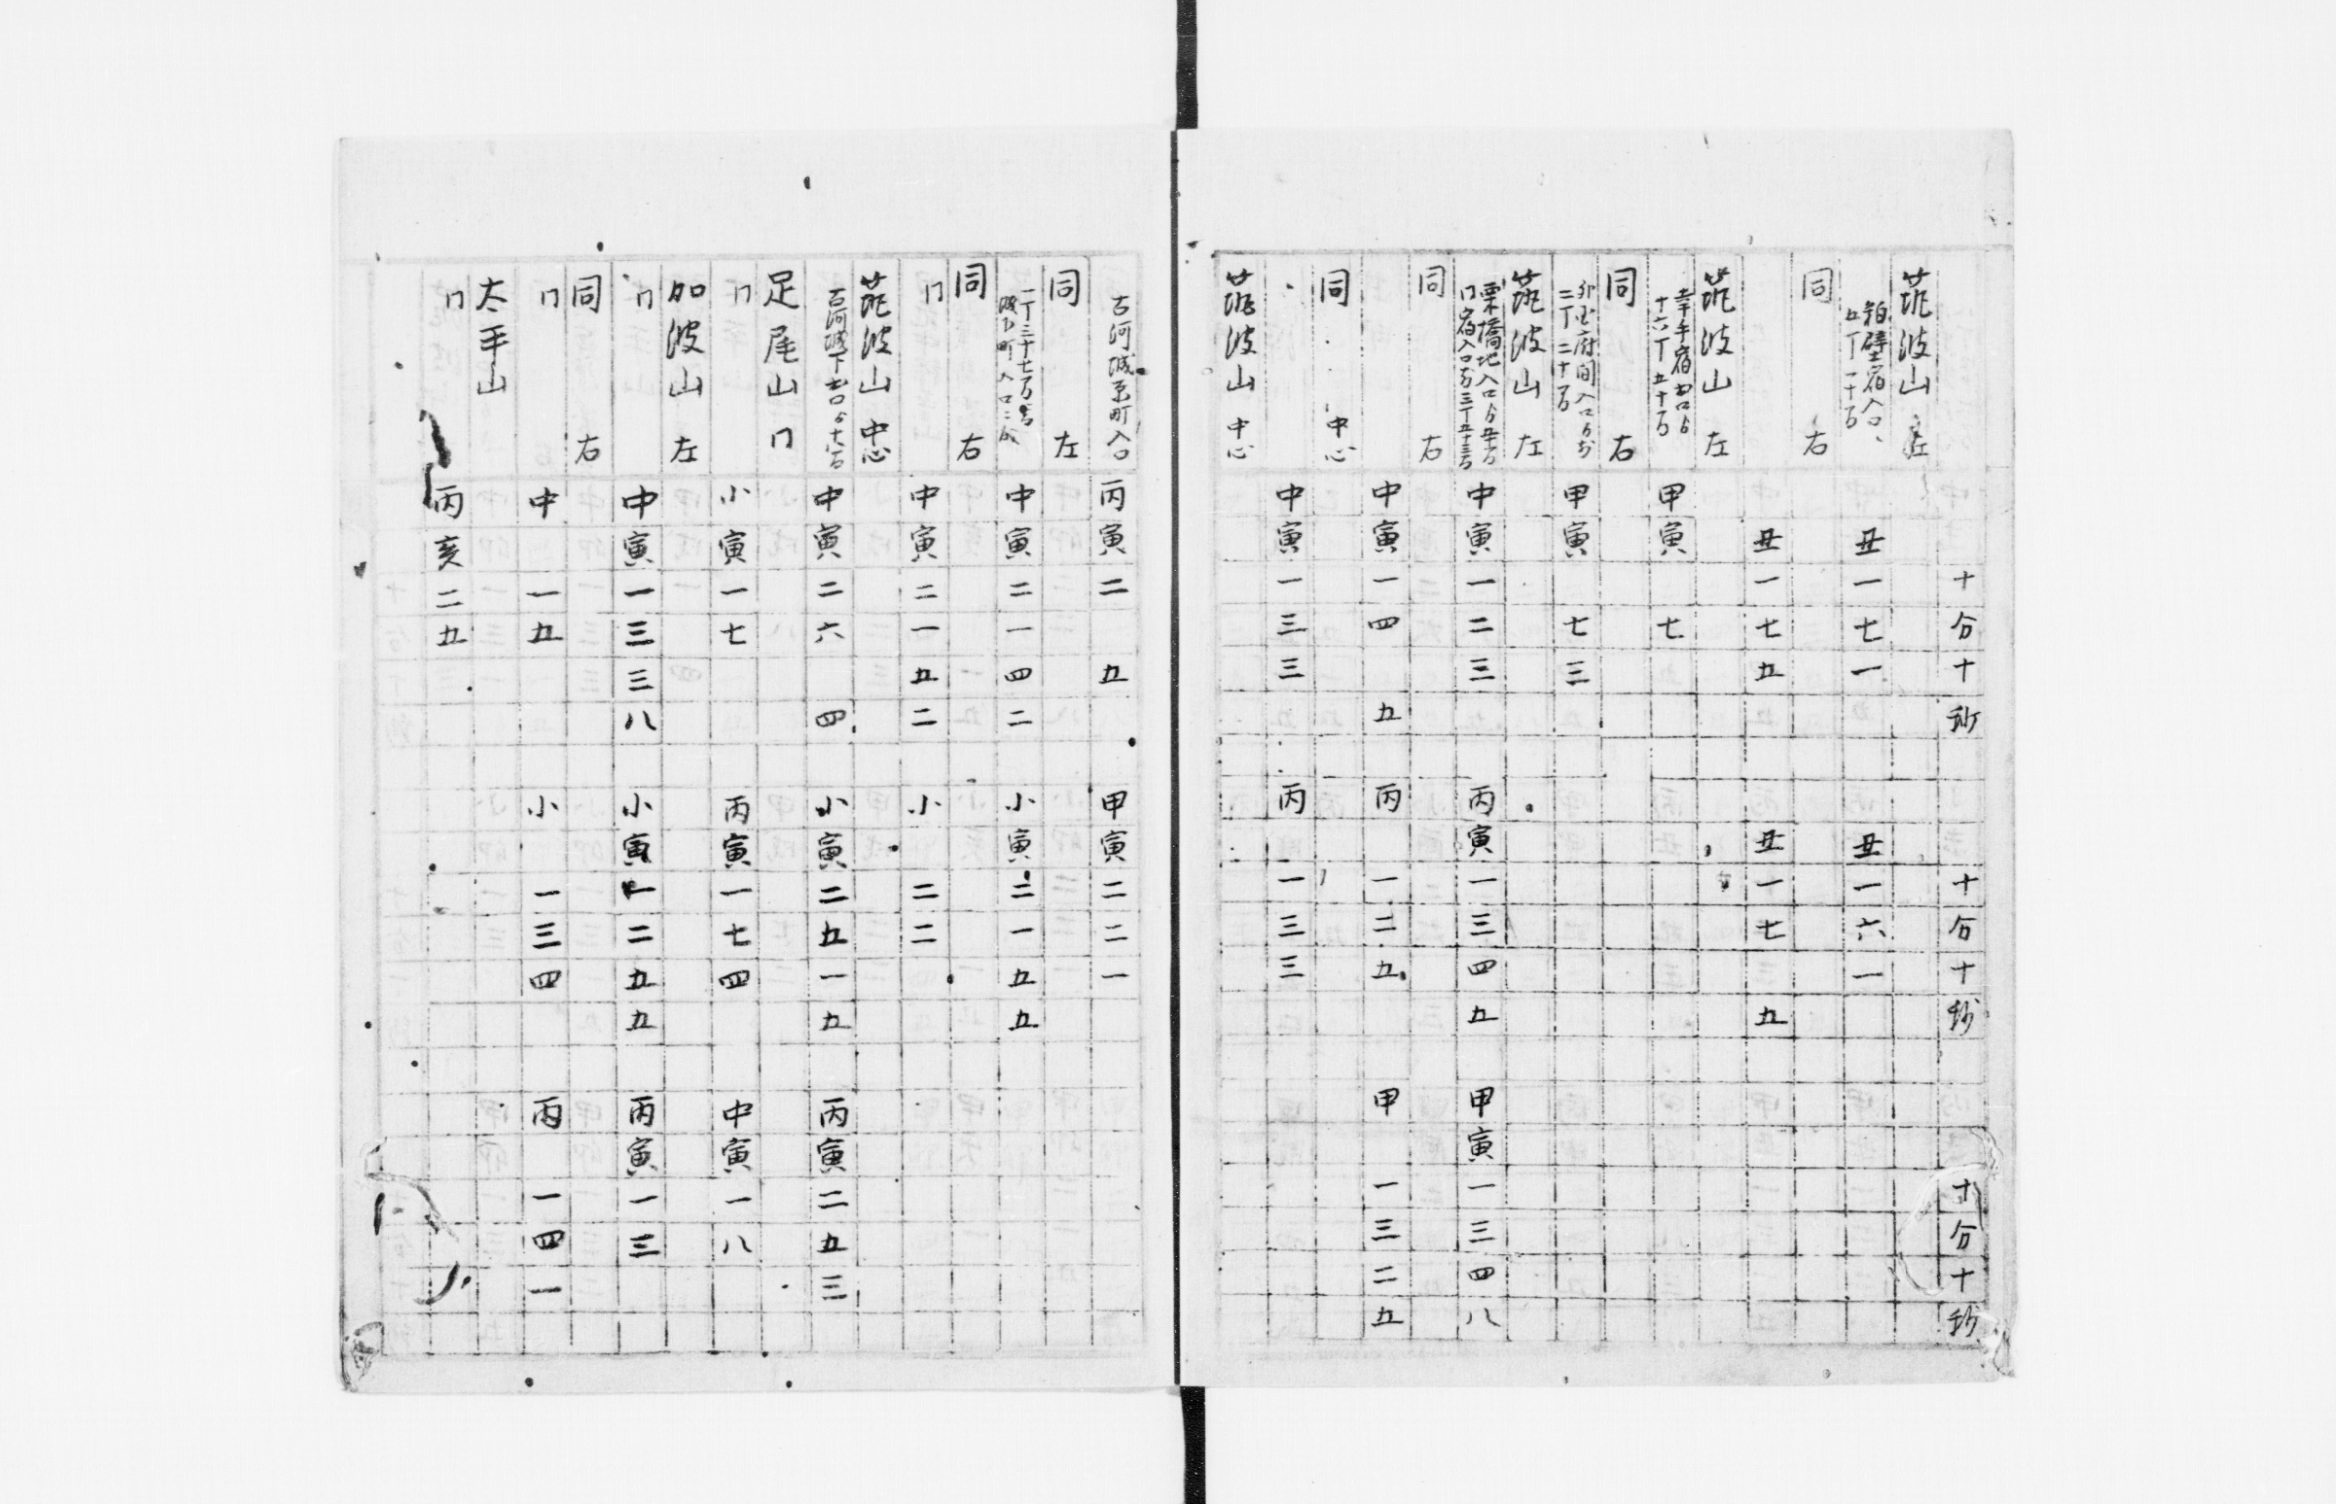 十分十秒 十分十秒 十分十秒
筑波山 左
粕壁宿入口、
五丁一十間 丑一七一 丑一六一
同 右
丑一七五 丑一七 五
筑波山 左
幸手宿出口ゟ
十六丁五十間 甲寅 七
同 右
二丁二十間 甲寅 七三
筑波山 左
栗橋地入口ゟ
中寅一二三 丙寅一三四五 甲寅一三四八
同 右
中寅一四 五 丙 一二五 甲 一三二五
同 中心
中寅一三三 丙 一三三
筑波山 中心
古河城下町入口 丙寅二 五 甲寅二二一
同 左
一丁三十七間
城下町入口 中寅二一四二 小寅二一五五
同 右
〃 中寅二一五二 小 二二
筑波山 中心
古河城下出口ゟ十六間 中寅二六 四 小寅二五一五 丙寅二五三
足尾山 〃
〃 小寅一七 丙寅一七四 中寅一八
加波山 左
〃 中寅一三三八 小寅一二五五 丙寅一三
同 右
〃 中 一五 小 一三四 丙 一四一
太平山
〃 丙亥二五